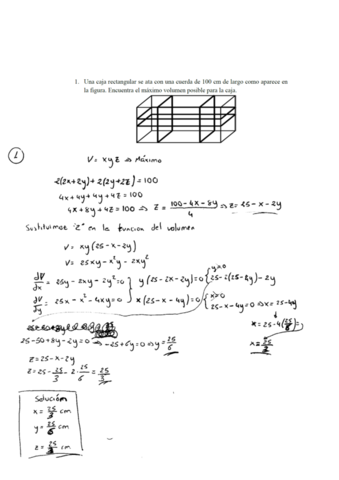 1. Una caja rectangular se ata con una cuerda de 100 cm de largo como aparece en
la figura. Encuentra el máximo volumen posible para la caja.
1
V = xyz → Máximo
2(2x+2y)+2(2y+2z)=100
4x+4y+4y+4z=100
4x+8y+4z=100 ⇒ z = (100-4x-8y)/4 ⇒ z=25-x-2y
Sustituimos "z" en la funcion del volumen
V= xy(25-x-2y)
V= 25xy-x²y-2xy²
dV/dx = 25y-2xy-2y²=0 } y(25-2x-2y)=0 { y≠0
dV/dy = 25x-x²-4xy=0 } x(25-x-4y)=0 { x≠0
25-x-4y=0 ⇒ x=25-4y
25-50+8y-2y=0 ⇒ -25+6y=0 ⇒ y=25/6
x=25-4(25/6)=
x=25/3
z=25-x-2y
z=25-25/3-2·25/6=25/3
Solución
x=25/3 cm
y=25/6 cm
z=25/3 cm